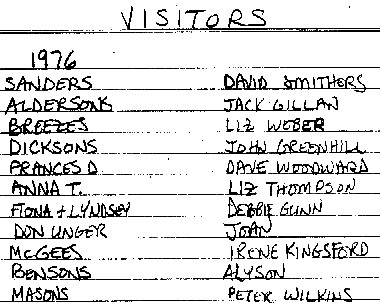 VISITORS
1976
SANDERS DAVID SMITHERS
ALDERSONS JACK GILLAN
BREEZES LIZ WEBER
DICKSONS JOHN GREENHILL
FRANCES D DAVE WOODWARD
ANNA T. LIZ THOMPSON
FIONA + LYNDSEY DEBBIE GUNN
DON UNGER JOAN
MCGEES IRENE KINGSFORD
BENSONS ALYSON
MASONS PETER WILKINS